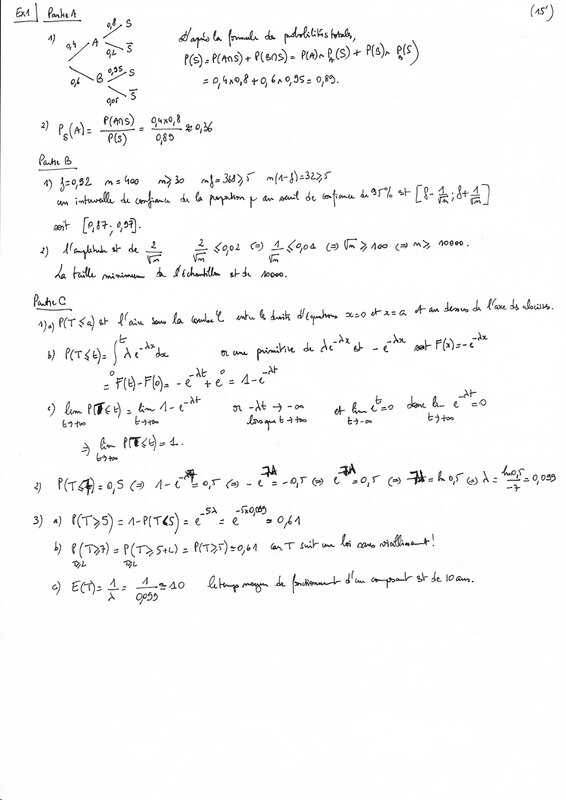 Ex1 Partie A (15')
1) 0,4 A 0,8 S
0,2 S̅
0,6 B 0,95 S
0,05 S̅
D'après la formule des probabilités totales,
P(S) = P(A∩S) + P(B∩S) = P(A) × P_A(S) + P(B) × P_B(S)
= 0,4×0,8 + 0,6×0,95 = 0,89.
2) P_S(A) = P(A∩S)/P(S) = 0,4×0,8/0,89 ≈ 0,36
Partie B
1) f=0,92 n=400 n≥30 nf=368≥5 n(1-f)=32≥5
un intervalle de confiance de la proportion p au seuil de confiance de 95% est [f - 1/√n ; f + 1/√n]
soit [0,87 ; 0,97].
2) l'amplitude est de 2/√n 2/√n ≤ 0,02 ⇔ 1/√n ≤ 0,01 ⇔ √n ≥ 100 ⇔ n ≥ 10000.
La taille minimum de l'échantillon est de 10000.
Partie C
1) a) P(T≤a) est l'aire sous la courbe C entre les droites d'équations x=0 et x=a et au dessus de l'axe des abscisses.
b) P(T≤t) = ∫₀ᵗ λe^{-λx}dx or une primitive de λe^{-λx} est -e^{-λx} soit F(x) = -e^{-λx}
= F(t) - F(0) = -e^{-λt} + e^0 = 1 - e^{-λt}
c) lim_{t→+∞} P(T≤t) = lim_{t→+∞} 1 - e^{-λt} or -λt → -∞ lorsque t→+∞ et lim_{t→-∞} e^t = 0 donc lim_{t→+∞} e^{-λt} = 0
⇒ lim_{t→+∞} P(T≤t) = 1.
2) P(T≤7) = 0,5 ⇔ 1 - e^{-7λ} = 0,5 ⇔ -e^{-7λ} = -0,5 ⇔ e^{-7λ} = 0,5 ⇔ -7λ = ln 0,5 ⇔ λ = ln0,5/-7 ≈ 0,099
3) a) P(T≥5) = 1 - P(T≤5) = e^{-5λ} = e^{-5×0,099} ≈ 0,61
b) P_{T≥2}(T≥7) = P_{T≥2}(T≥5+2) = P(T≥5) ≈ 0,61 car T suit une loi sans vieillissement !
c) E(T) = 1/λ = 1/0,099 ≈ 10 le temps moyen de fonctionnement d'un composant est de 10 ans.